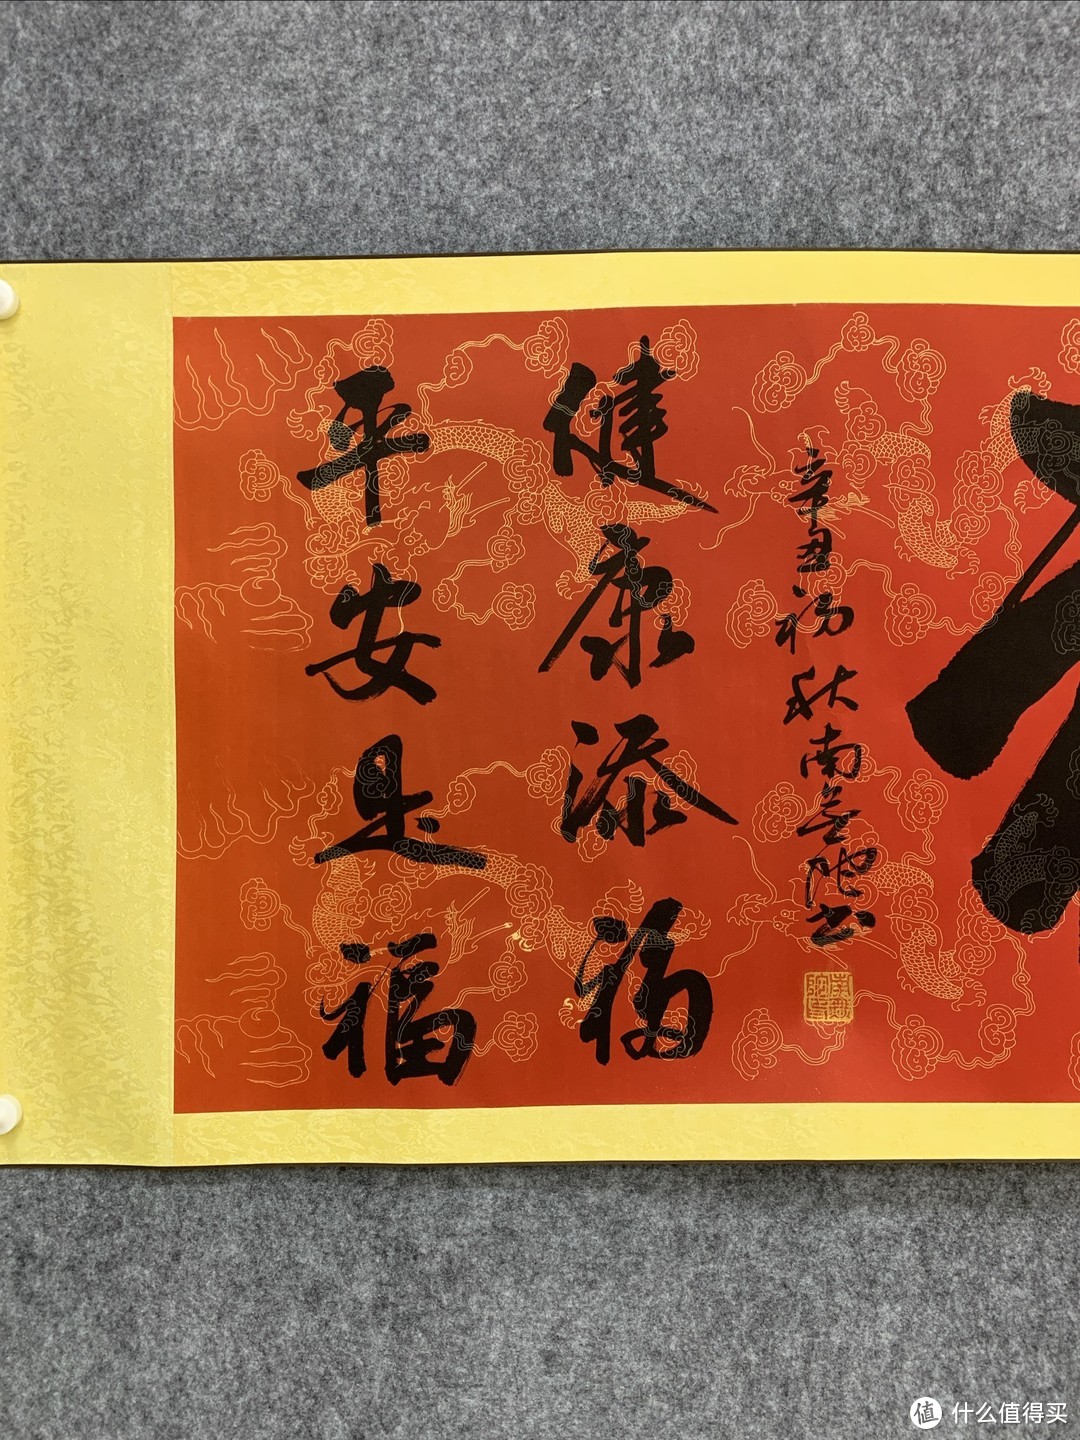 辛丑 秋南 书
健康添福
平安是福
值 什么值得买